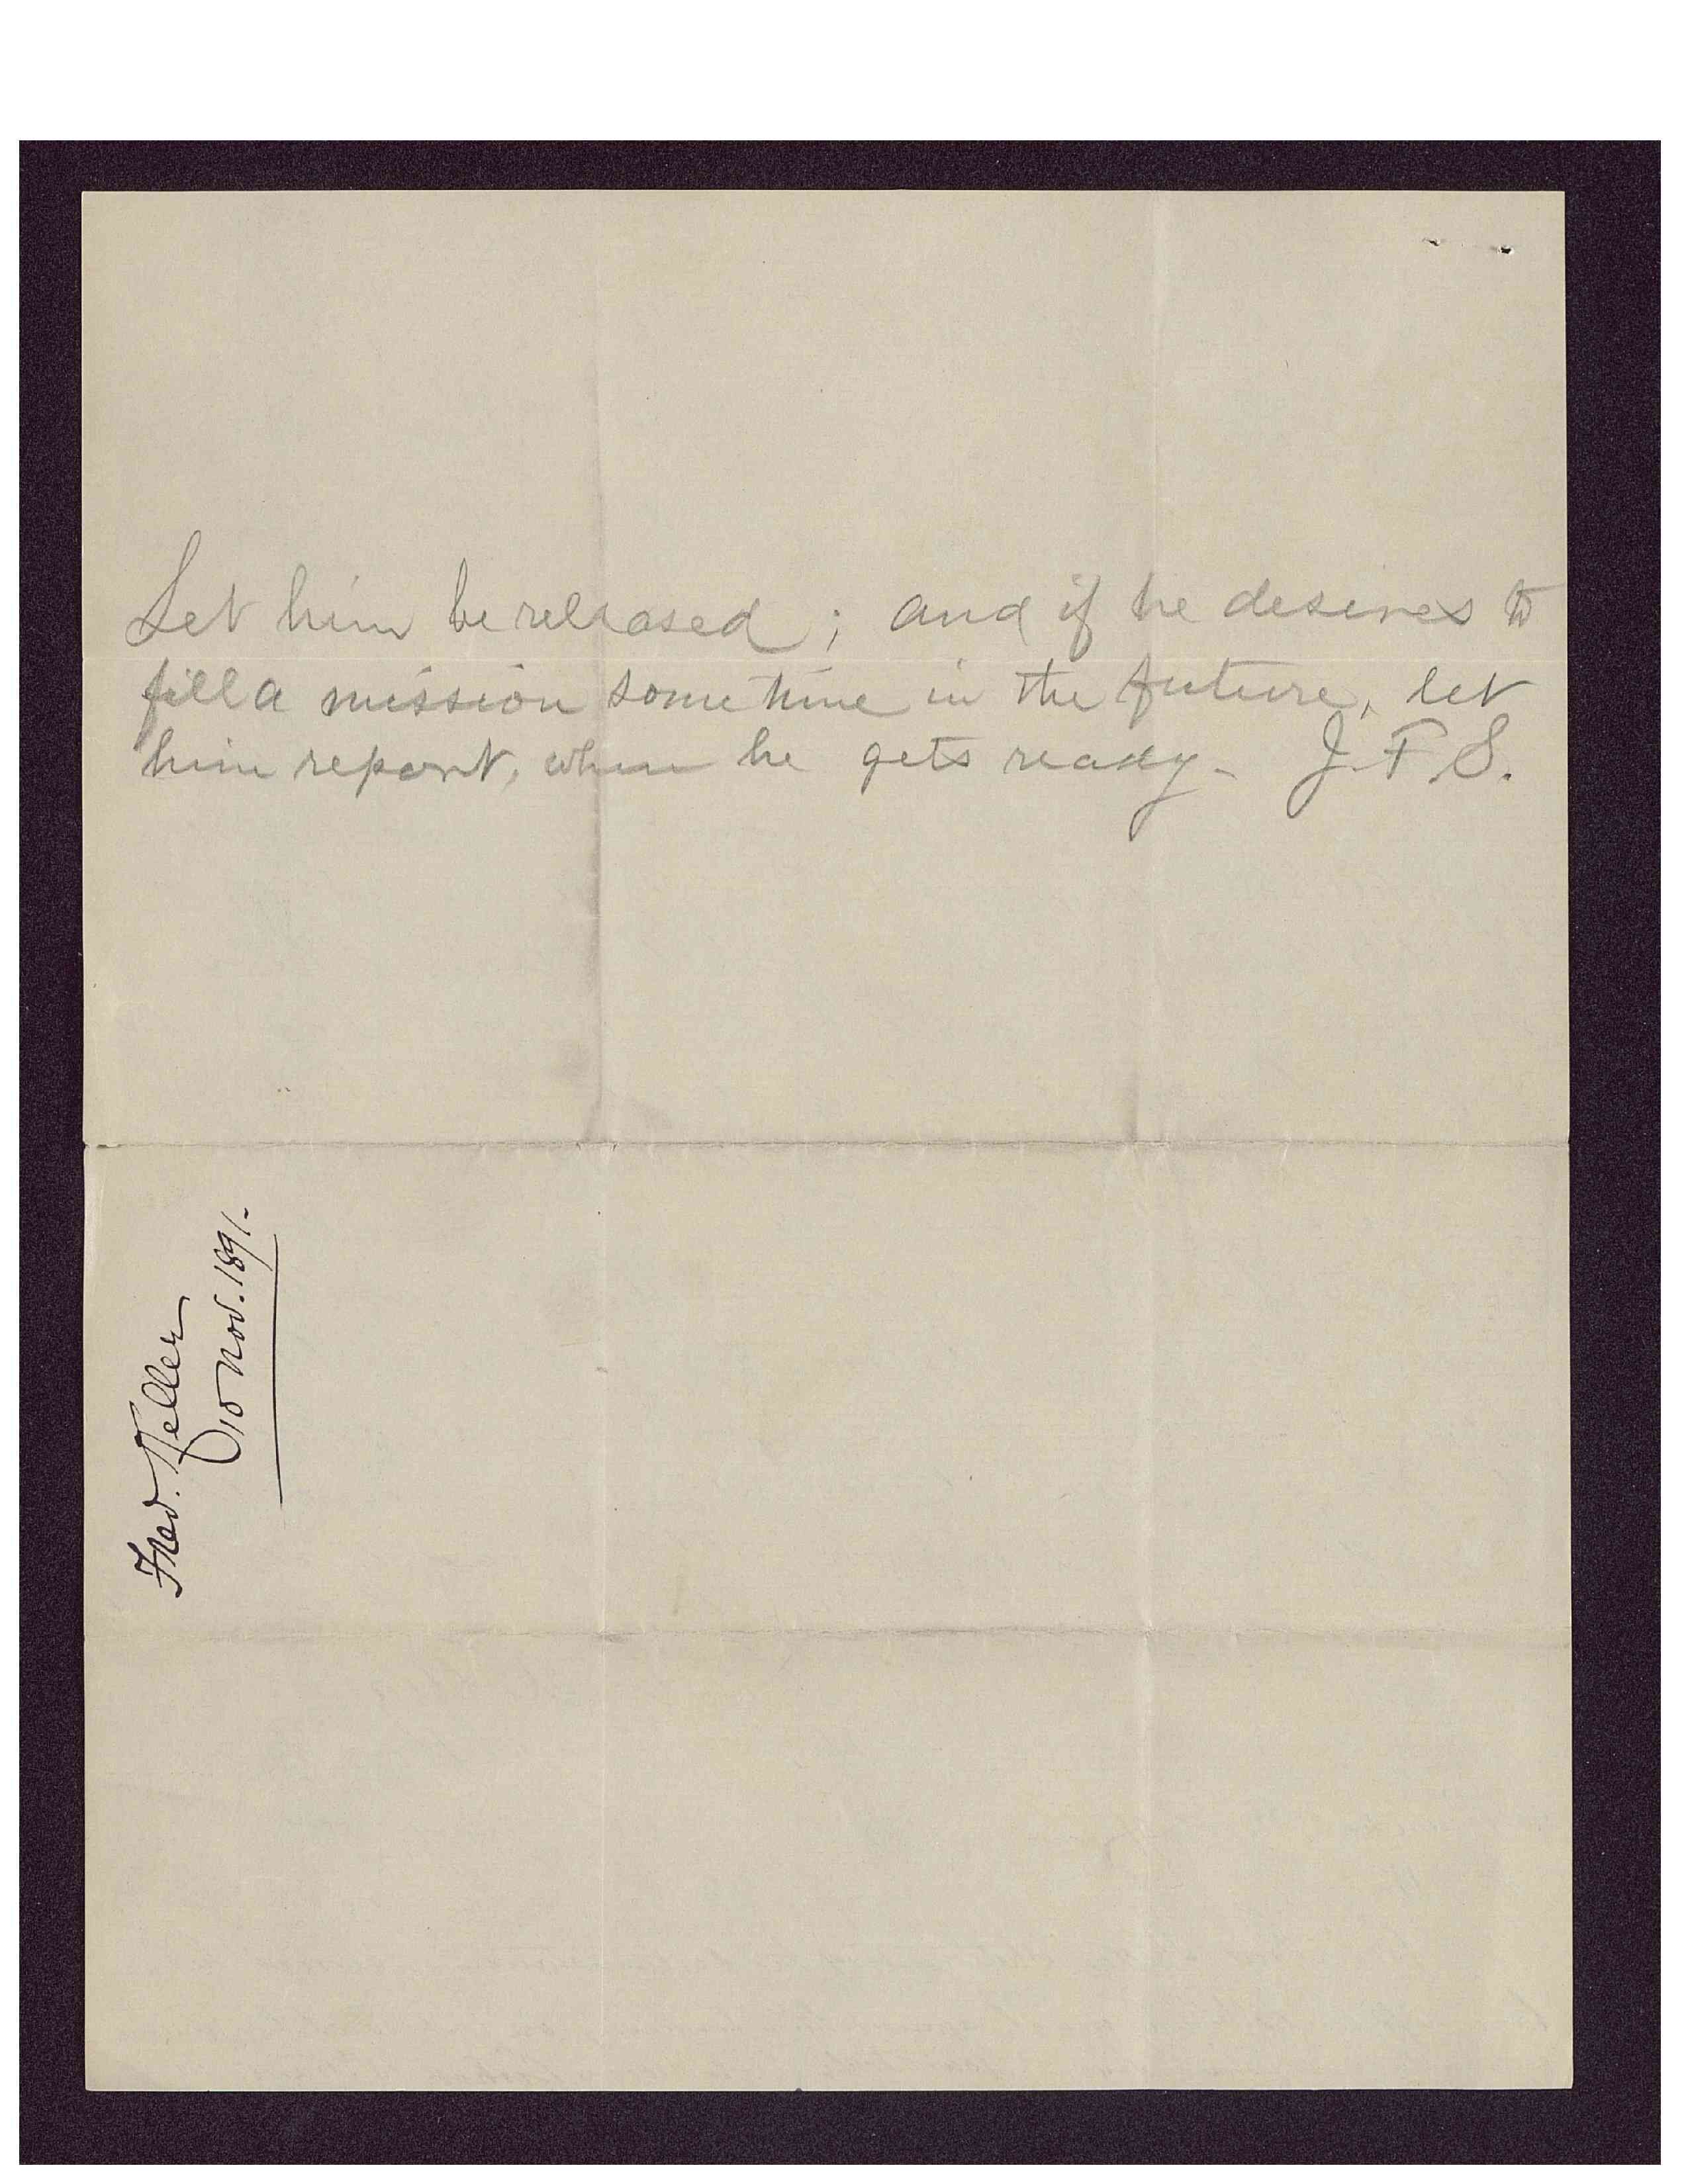 Let him be released; and if he desires to
fill a mission some time in the future, let
him report, when he gets ready - J. F. S.
Fred. Keller
10 Nov. 1891.